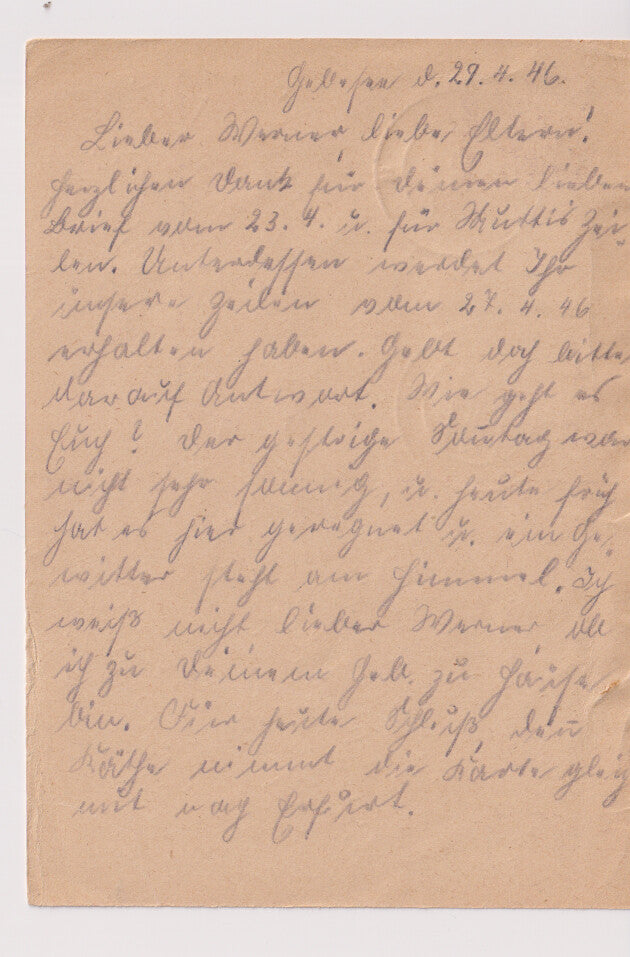 Gebesee d. 29.4.46.
Lieber Werner, liebe Eltern!
Herzlichen Dank für Deinen lieben
Brief vom 23.4. u. für Muttis Zei-
len. Unterdessen werdet Ihr
unsere Zeilen vom 27.4.46
erhalten haben. Gebt doch bitte
darauf Antwort. Wie geht es
Euch? Der gestrige Sonntag war
nicht sehr sonnig, u. heute früh
hat es hier geregnet u. ein Ge-
witter steht am Himmel. Ich
weiß nicht lieber Werner ob
ich zu Deinem Geb. zu Hause
bin. Für heute Schluß, denn
Käthe nimmt die Karte gleich
mit nach Erfurt.